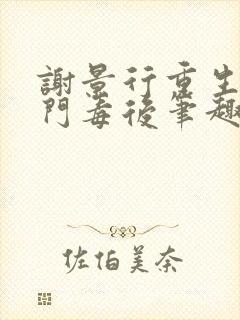 謝景行重生
門毒後筆趣
佐伯美奈